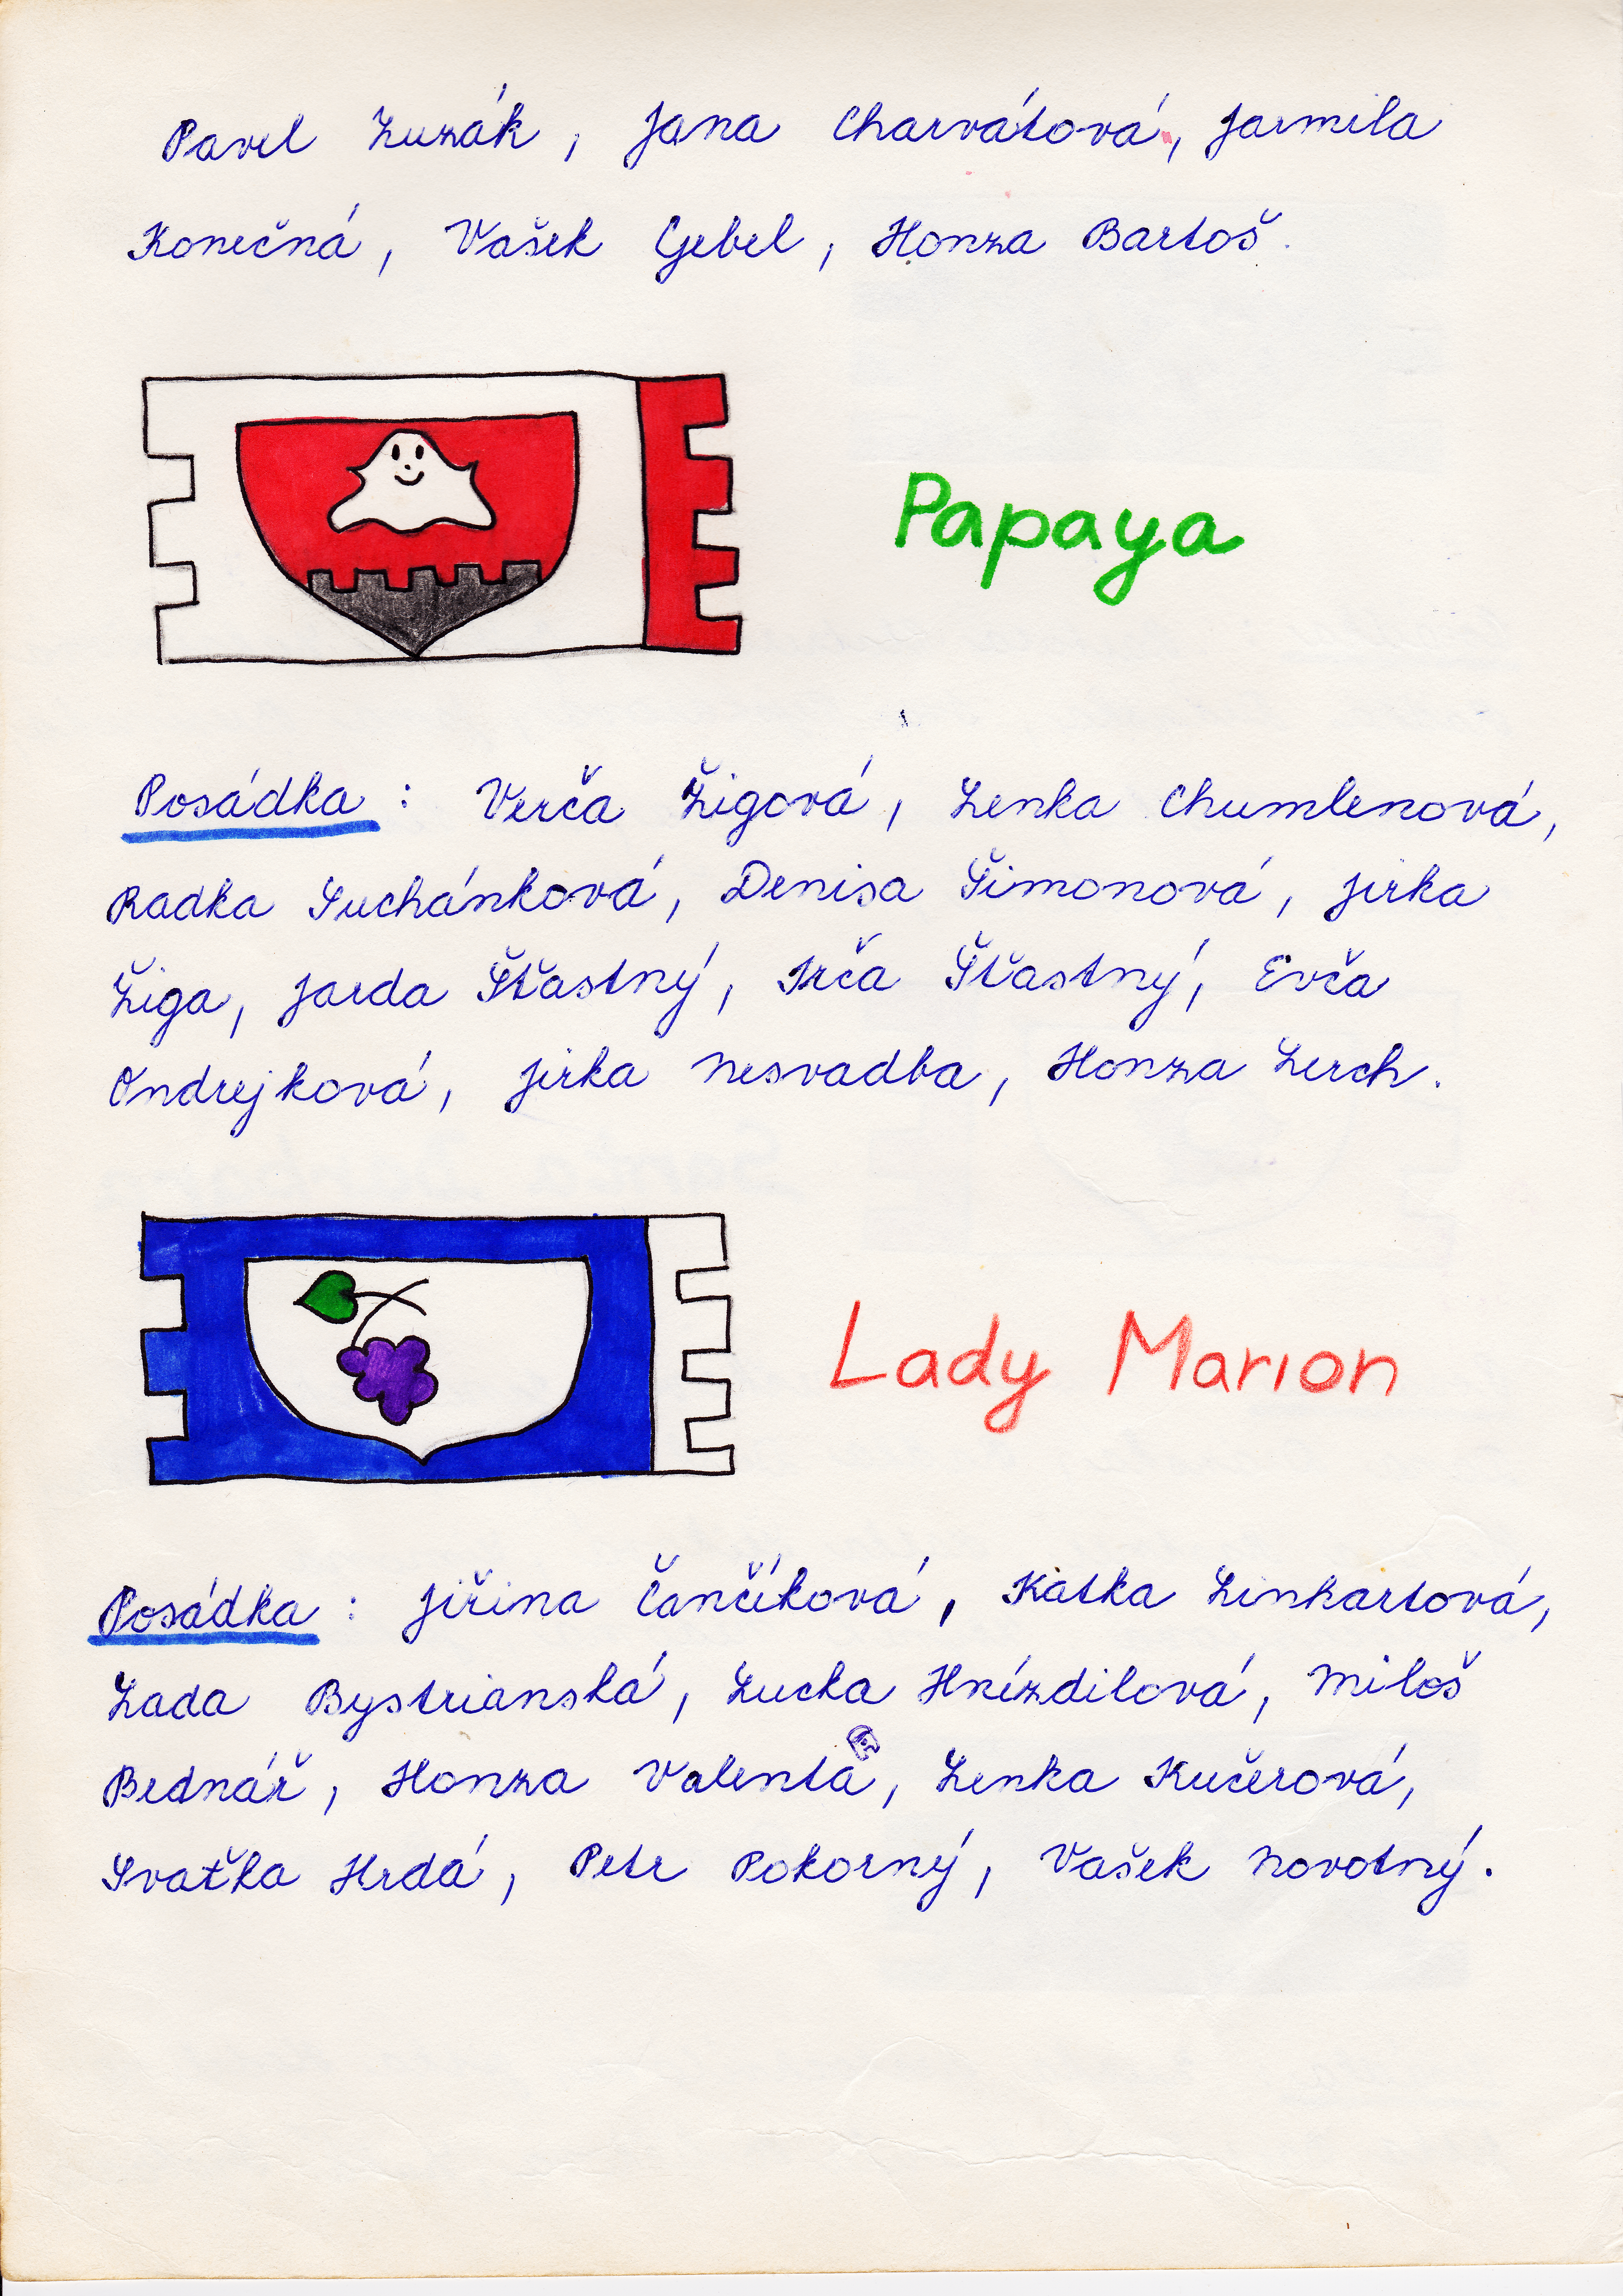 Pavel Luzák, Jana Charvátová, Jarmila
Konečná, Vašek Gebel, Honza Bartoš.
Papaya
Posádka: Verča Žigová, Lenka Chumlenová,
Radka Suchánková, Denisa Šimonová, Jirka
Žiga, Jarda Šťastný, Irča Šťastný, Evča
Ondrejková, Jirka Nesvadba, Honza Lerch.
Lady Marion
Posádka: Jiřina Čančíková, Katka Linhartová,
Lada Bystrianská, Lucka Hnízdilová, Miloš
Bednář, Honza Valenta, Lenka Kučerová,
Svaťka Hrdá, Petr Pokorný, Vašek Novotný.